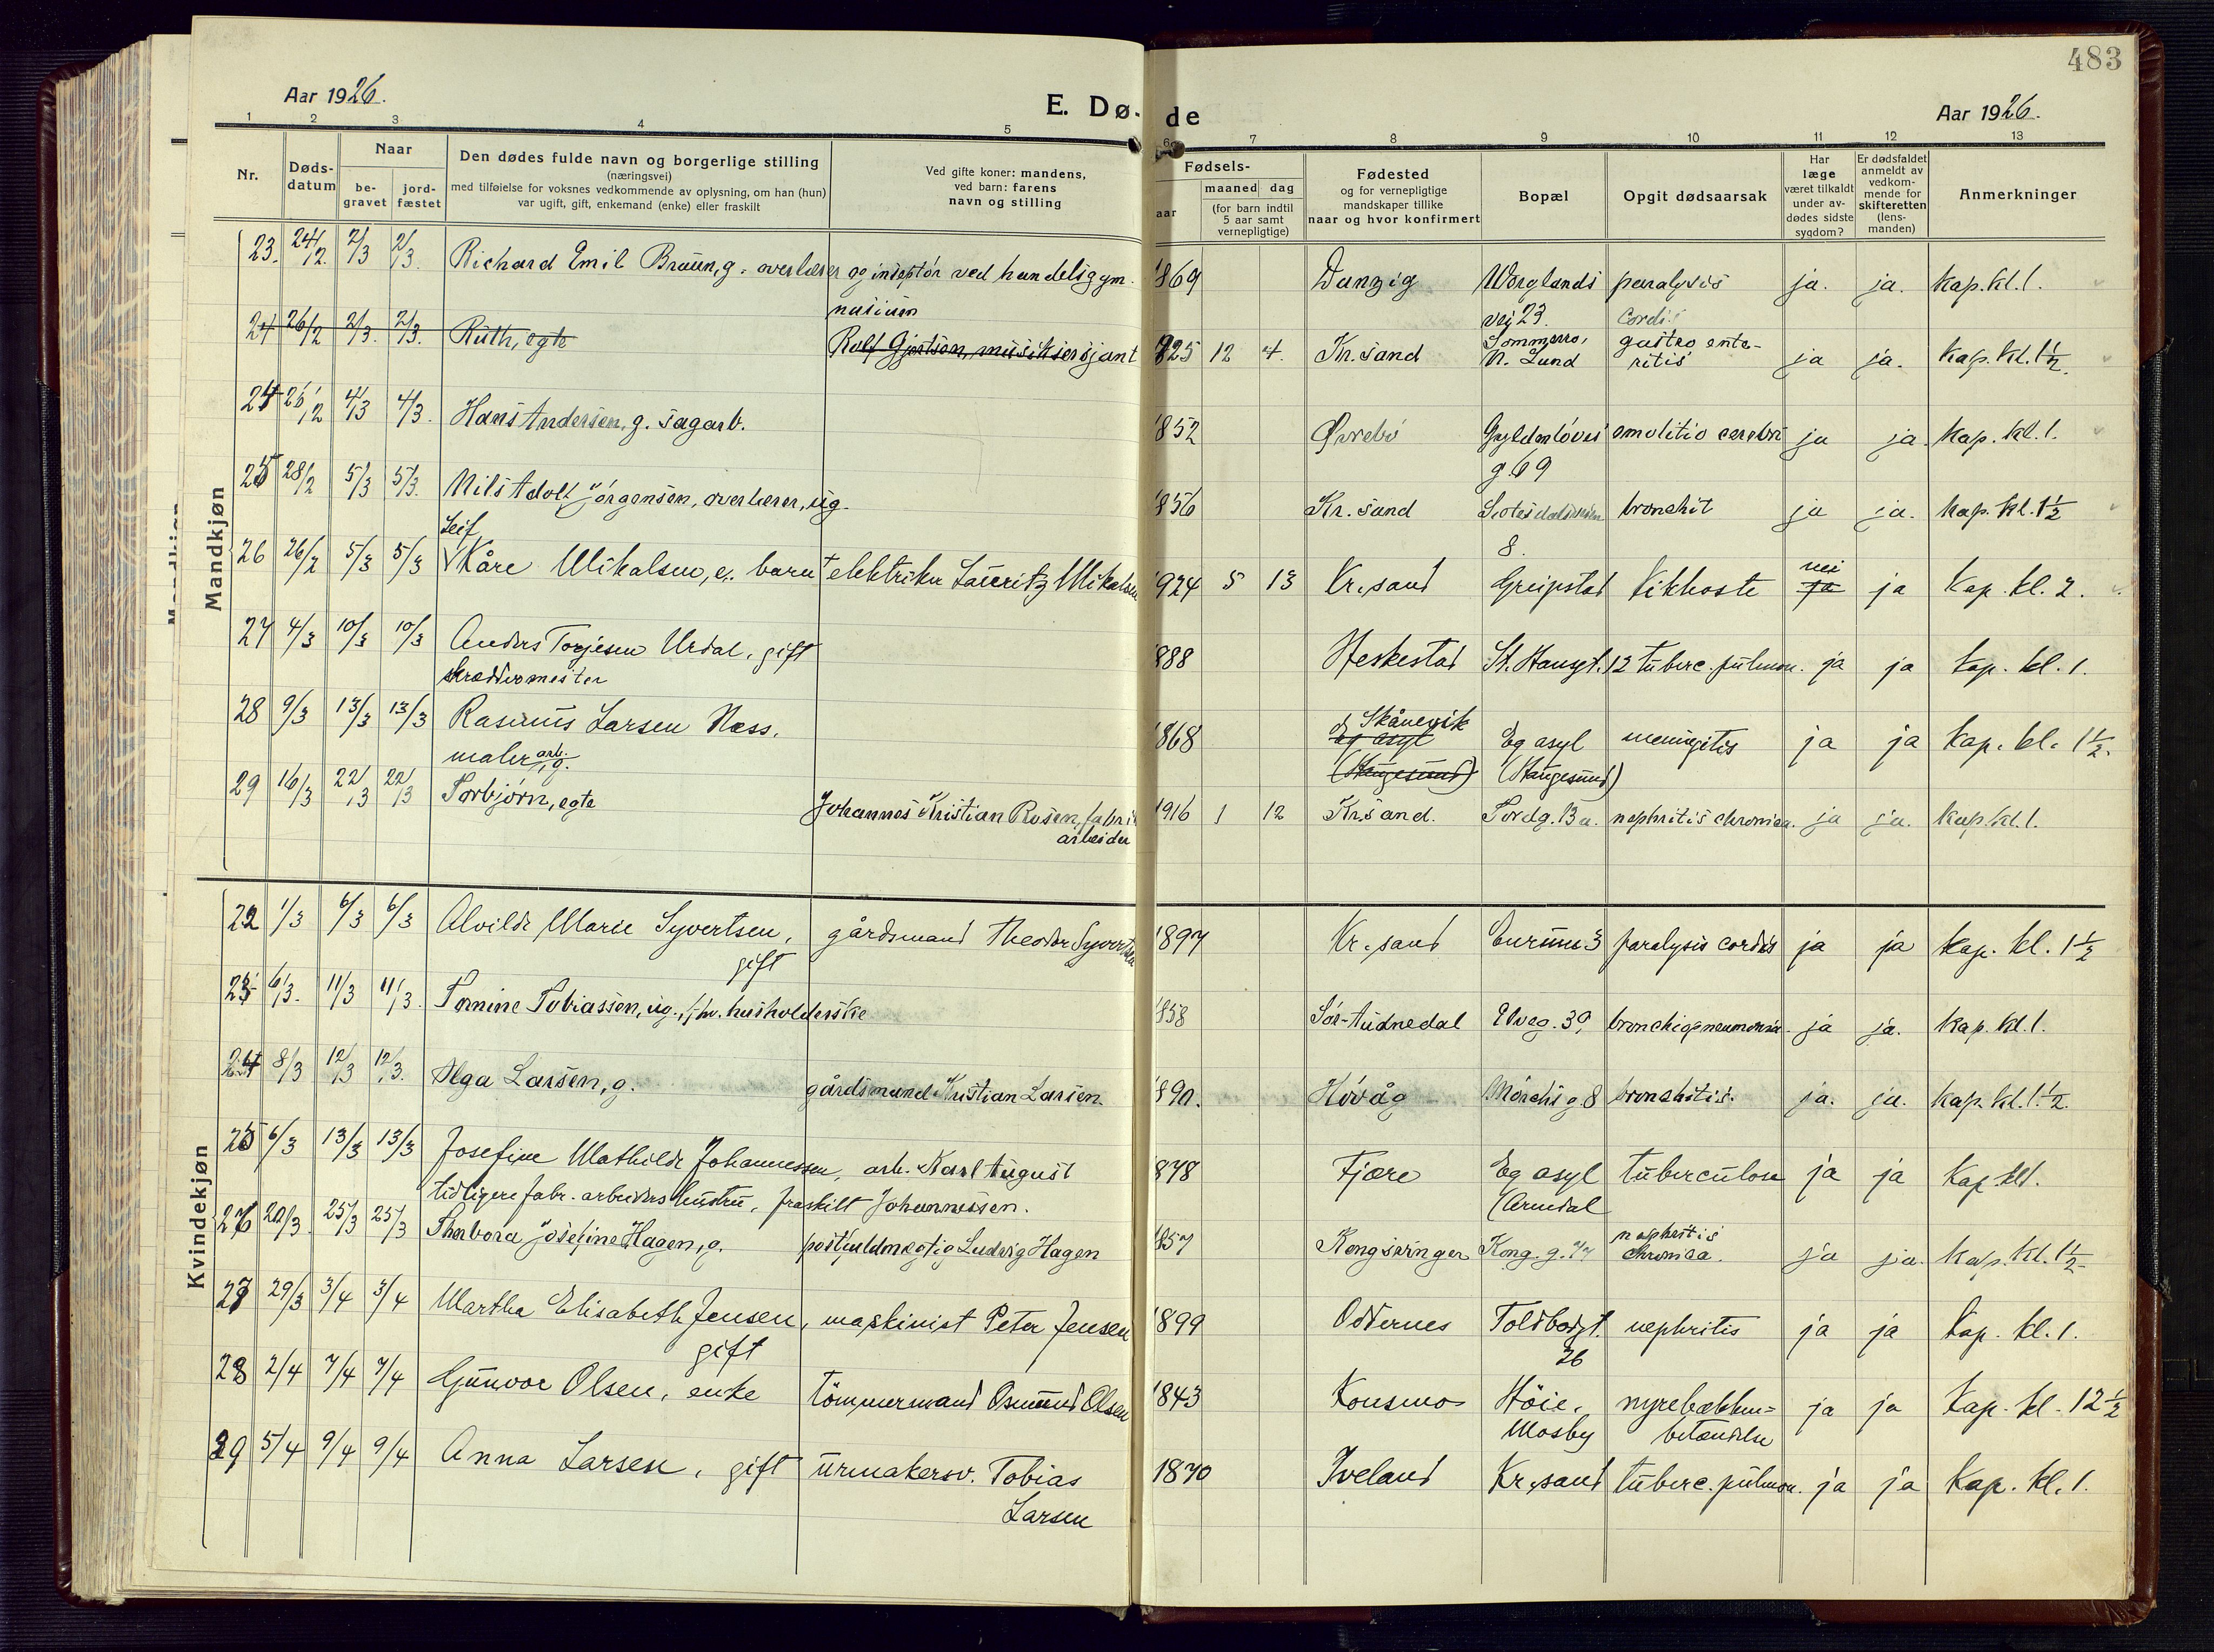 483
Aar 1926.
E. Dø-
de
Aar 1926.
1 2 3 4 5 6 7 8 9 10 11 12 13
Nr.
Døds-
datum
Naar
be-
gravet
jord-
fæstet
Den dødes fulde navn og borgerlige stilling
(næringsvei)
med tilføielse for voksnes vedkommende av oplysning, om han (hun)
var ugift, gift, enkemand (enke) eller fraskilt
Ved gifte koner: mandens,
ved barn: farens
navn og stilling
Fødsels-
aar
maaned dag
(for barn indtil
5 aar samt
vernepligtige)
Fødested
og for vernepligtige
mandskaper tillike
naar og hvor konfirmert
Bopæl
Opgit dødsaarsak
Har
læge
været tilkaldt
under av-
dødes sidste
sygdom?
Er dødsfaldet
anmeldt av
vedkom-
mende for
skifteretten
(lens-
manden)
Anmerkninger
Mandkjøn
23. 24/2. 2/3 2/3. Richard Emil Braun, g. overlærer og inspektör ved handelsgym- 1869 Danzig paralysis ja. ja. Kap. kl. 1.
nasium vej 23. cordis
24 26/2 2/3. 2/3. Ruth, egte Rolf Gjertsen, musikersjant 1925 12 4. Kr.sand Sommerro, gastro ente-
N. Lund ritis ja ja. Kap. kl. 1½.
24 26/2 4/3 4/3. Hans Andersen, g. sagarb. 1852 Øvrebö Gyldenlöves emolitio cerebri ja ja Kap. kl. 1.
g. 69
25 28/2 5/3 5/3. Nils Adolf Jörgensen, overlærer, ug. 1856 Kr.sand bronchit ja ja. Kap. kl. 1½
8.
Leif
26 26/2 5/3 5/3 Kåre Mikalsen, e. barn elektriker Lauritz Mikalsen 1924 5 13 Kr.sand Greipstad Kikhoste nei ja ja Kap. kl. 2.
27 4/3 10/3 10/3 Anders Torjesen Urdal, gift 1888 Heskestad St. Hansgt. 12 tuberc. pulmon. ja ja Kap. kl. 1.
skræddermester
28 9/3 13/3 13/3 Rasmus Larsen Næss, 1868 Skånevik Eg asyl Eg asyl meningitis ja ja Kap. kl. 1½.
maler arb. g. (Haugesund) (Haugesund)
29 16/3 22/3 22/3 Torbjörn, egte Johannes Kristian Rosen, fabrik 1916 1 12 Kr.sand. Tordg. 13 a. nephritis chronica. ja ja. Kap. kl. 1.
arbeider
Kvindekjøn
22 1/3 6/3 6/3 Alvilde Marie Syvertsen, gårdsmand Theodor Syvertsen 1897 Kr.sand 3 paralysis cordis ja ja Kap. kl. 1½
gift
23 6/3. 11/3 11/3. Tomine Tobiassen, ug., fhv. husholderske 1858 Sör-Audnedal Elveg. 39, bronchiopneumonia. ja ja. Kap. kl. 1.
24 8/3 12/3 12/3. Olga Larsen, g. gårdsmand Kristian Larsen. 1890. Hövåg Mörchs g. 8 bronchitis. ja. ja. Kap. kl. 1½.
25 6/3 13/3 13/3 Josefine Mathilde Johannessen, arb. Karl August 1878 Fjære Eg asyl tuberculose ja ja Kap. kl 1.
tidligere fabr. arbeiders hustru, fraskilt Johannessen. (Arendal
26 20/3. 25/3 25/3 Thorbora Josefine Hagen, g. postfuldmægtig Ludvig Hagen 1857 Kongsvinger Kong. g. nephritis
chronica. ja ja. Kap. kl. 1½
27 29/3 3/4 3/4 Martha Elisabeth Jensen, maskinist Peter Jensen 1899 Oddernes Toldbodgt. nephritis ja ja Kap. kl. 1.
gift 26
28 2/4 7/4 7/4 Gunvor Olsen, enke tömmermand Osmund Olsen 1843 Konsmo Höie, nyrebækken- ja ja Kap. kl. 12½
Mosby betændelse
29 5/4 9/4 9/4 Anna Larsen, gift urmakersv. Tobias 1870 Iveland Kr.sand tuberc. pulmon. ja ja Kap. kl. 1.
Larsen